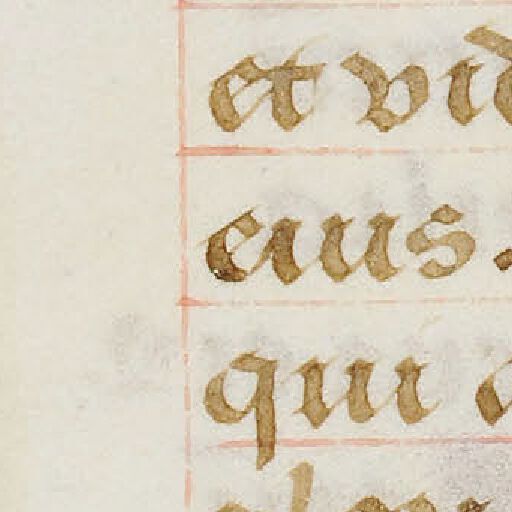 et vid
eius.
qui